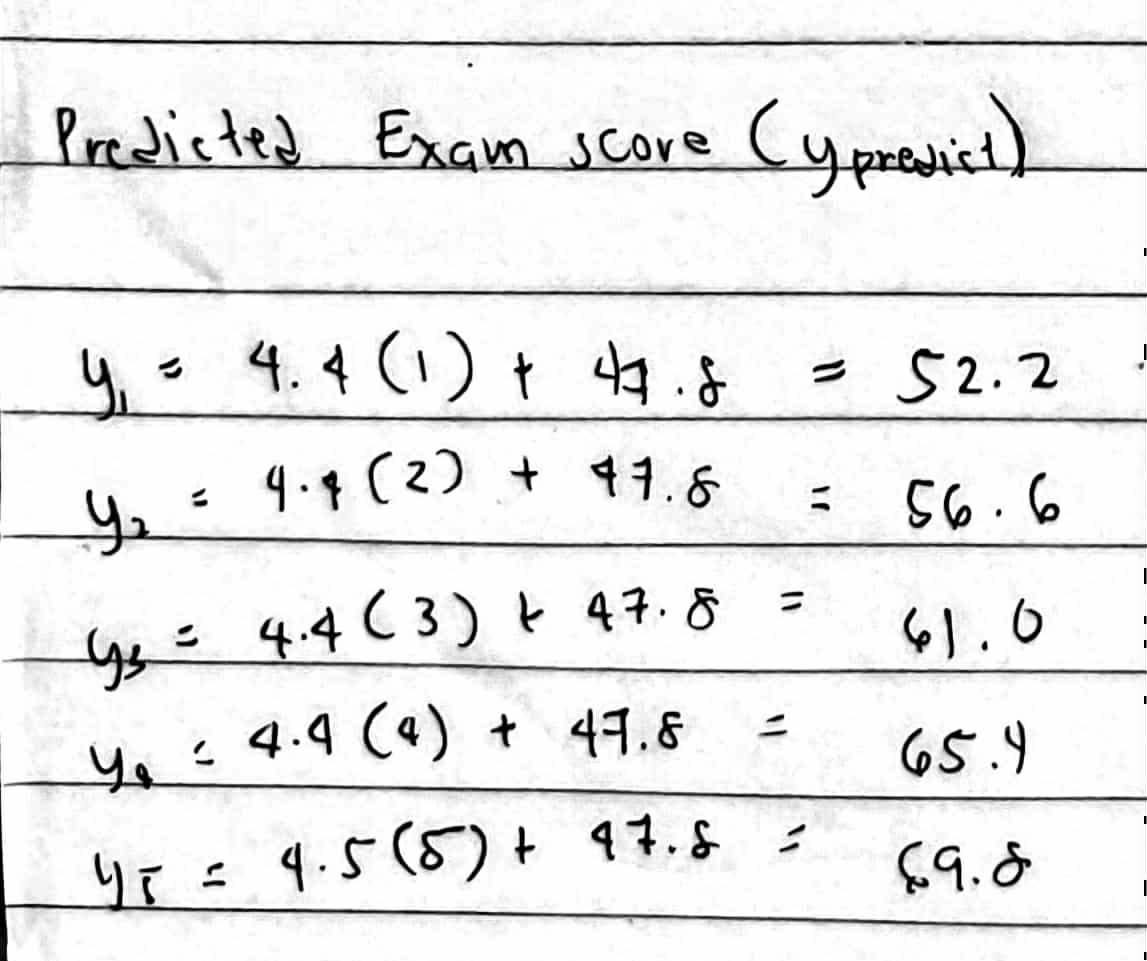 Predicted Exam score (y predict)
y₁ = 4.4 (1) + 47.8 = 52.2
y₂ = 4.4 (2) + 47.8 = 56.6
y₃ = 4.4 (3) + 47.8 = 61.0
y₄ = 4.4 (4) + 47.8 = 65.4
y₅ = 4.5 (5) + 47.8 = 69.8